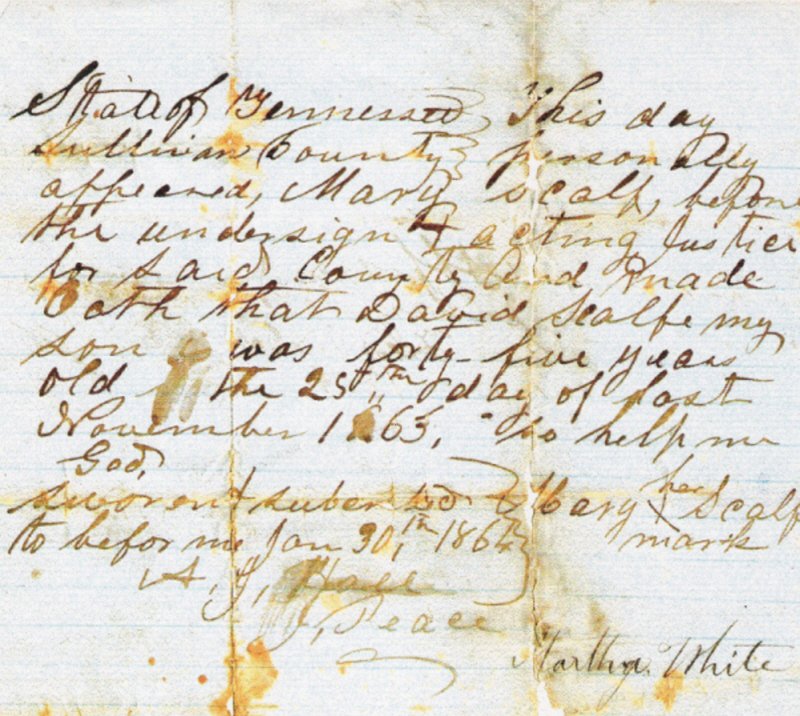 State of Tennessee, This day
Sullivan County personally
appeared, Mary Scalf, before
the undersign acting Justice
for said County and made
Oath that David Scalfe my
son was forty-five years
old the 25th day of last
November 1863, so help me
God,
sworen & suber to Mary her Scalf
to before me Jan 30,th 1864 mark
A. J, Hall
J, Peace
Martha. White